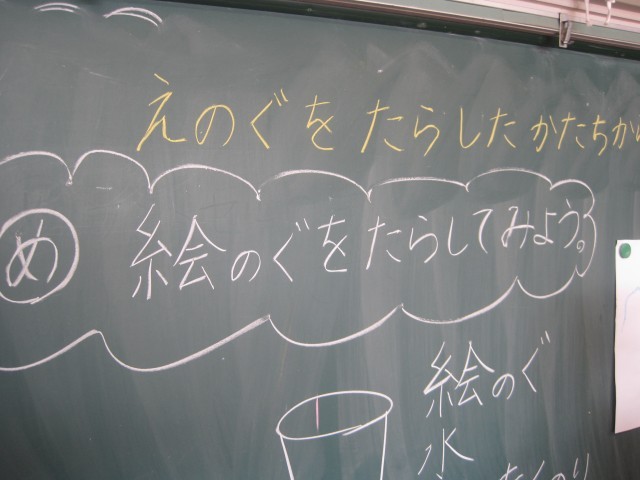 えのぐをたらしたかたちか
め 絵のぐをたらしてみよう。
絵のぐ
水